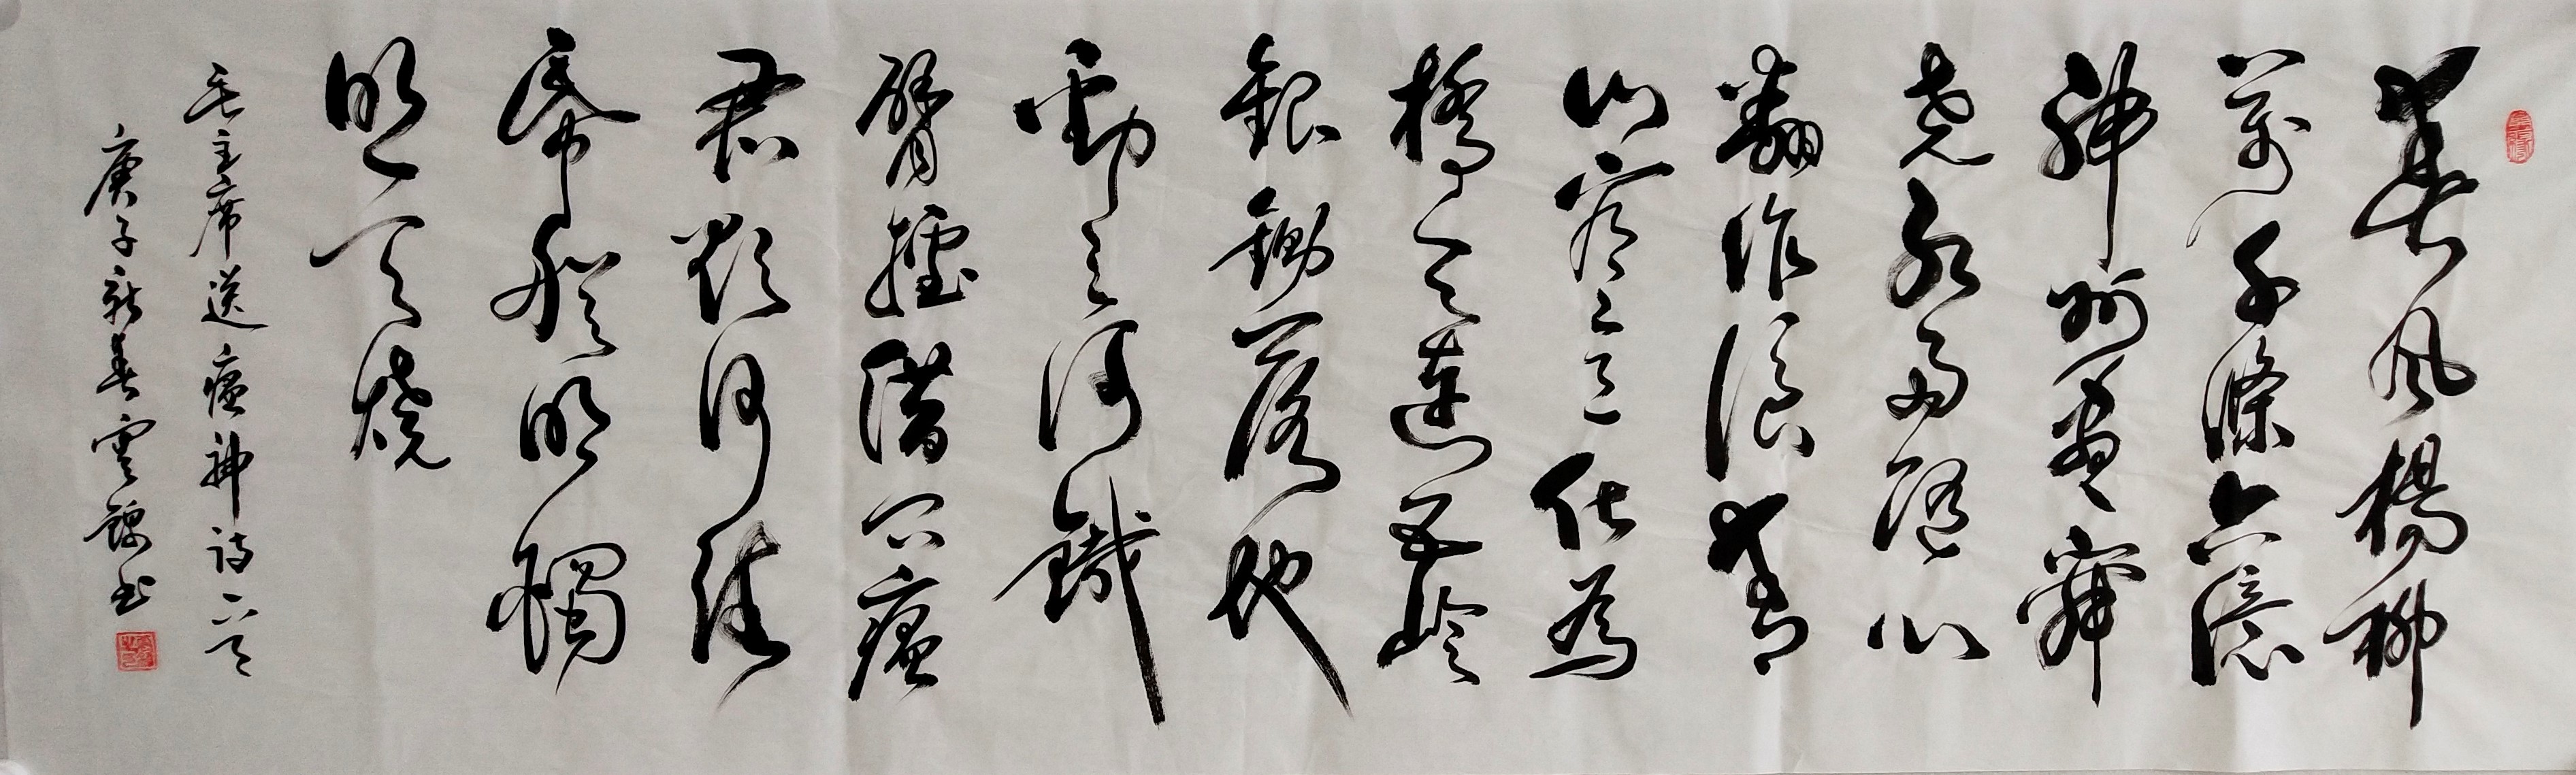 春风楊柳
萬千條六億
神州盡舜
堯紅雨随心
翻作浪青
山着意化為
橋天連五嶺
銀鋤落地
動三河鐵
臂摇借问瘟
君欲何往
帋船明燭
照天燒
毛主席送瘟神诗
庚子新春雲书